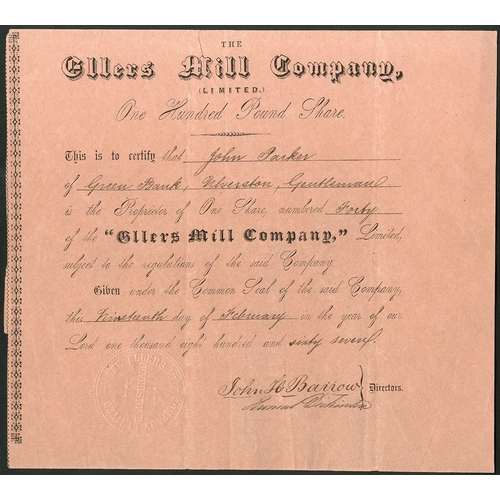 THE
Ellers Mill Company,
(LIMITED.)
One Hundred Pound Share.
This is to certify that John Parker
of Green Bank, Ulverston, Gentleman
is the Proprietor of One Share, numbered Forty
of the "Ellers Mill Company," Limited,
subject to the regulations of the said Company.
Given under the Common Seal of the said Company,
this Nineteenth day of February in the year of our
Lord one thousand eight hundred and sixty seven.
John H. Barrow
Directors.